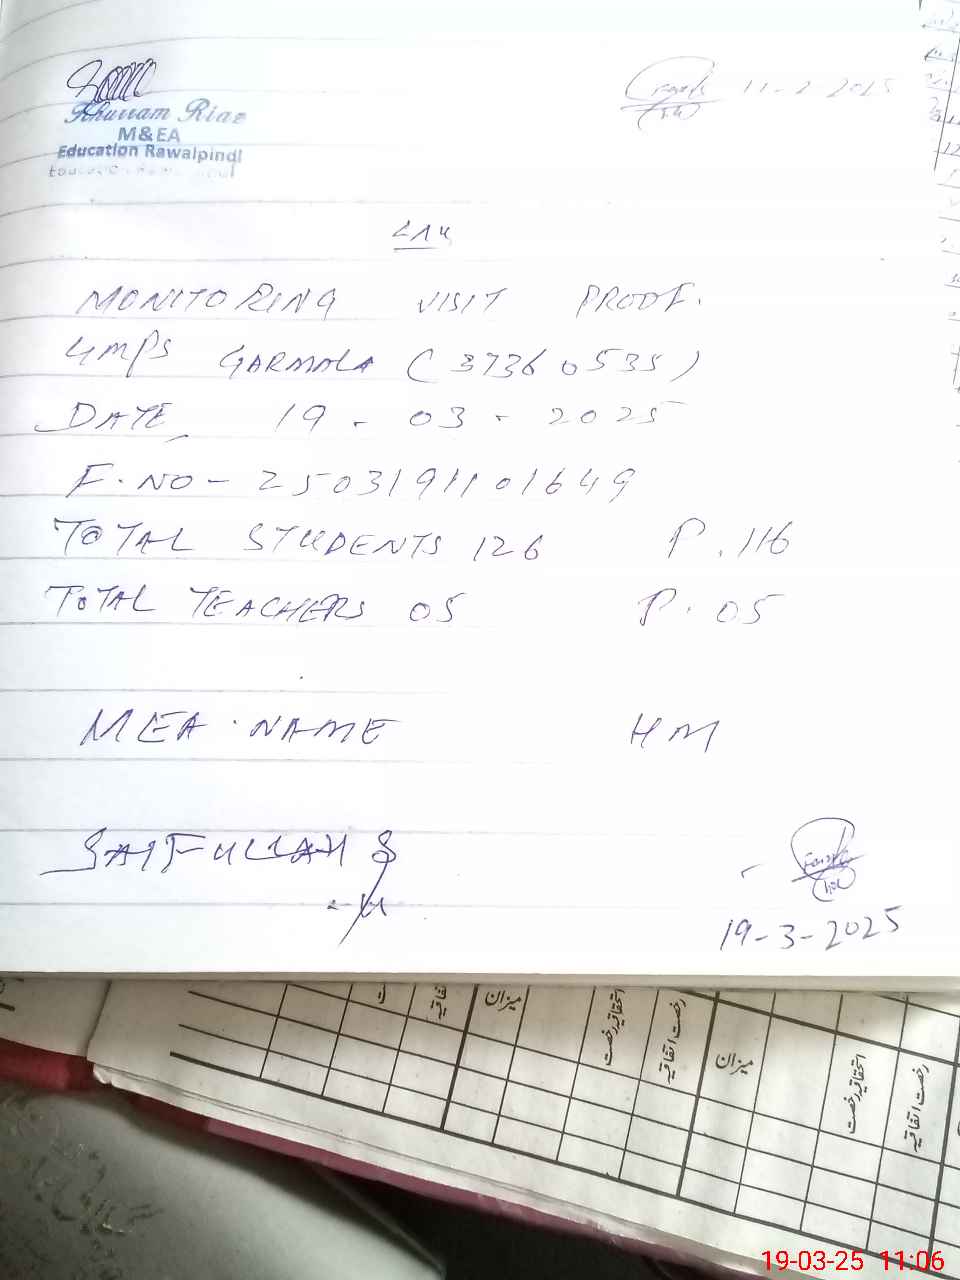 Khurram Riaz
M&EA
Education Rawalpindi
11-2-2025
MONITORING VISIT PROOF.
GMPS GARMALA (37360535)
DATE 19-03-2025
F.NO- 2503191101649
TOTAL STUDENTS 126 P.116
TOTAL TEACHERS 05 P.05
MEA.NAME HM
SAIFULLAH
19-3-2025
میزان
استحقاقیہ رخصت
رخصت اتفاقیہ
میزان
استحقاقیہ رخصت
رخصت اتفاقیہ
19-03-25 11:06